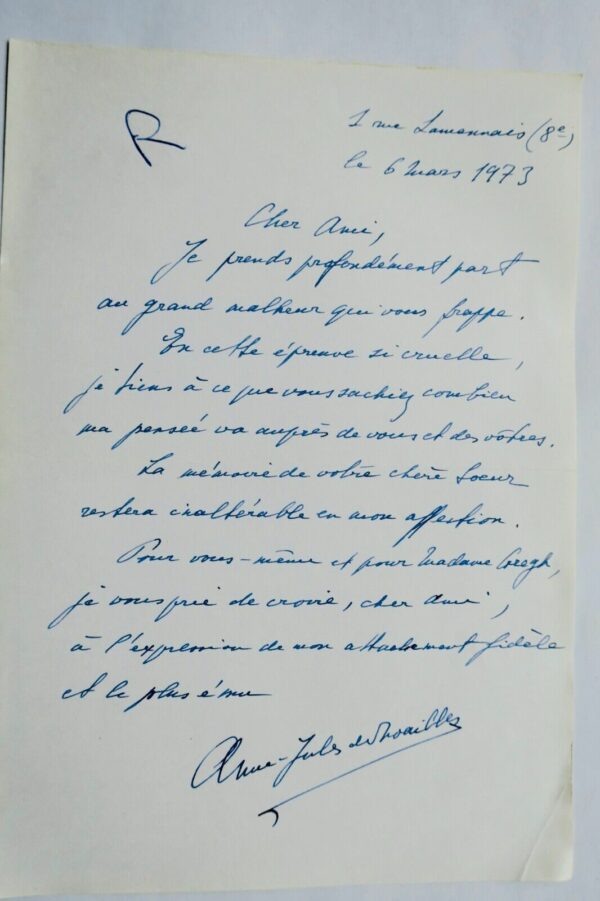 1 rue Lamennais (8e)
le 6 Mars 1973
Cher Ami,
Je prends profondément part
au grand malheur qui vous frappe.
En cette épreuve si cruelle,
je tiens à ce que vous sachiez combien
ma pensée va auprès de vous et des vôtres.
La mémoire de votre chère Soeur
restera inaltérable en mon affection.
Pour vous-même et pour Madame Gregh,
je vous prie de croire, cher Ami,
à l'expression de mon attachement fidèle
et le plus ému
Anne-Jules de Noailles